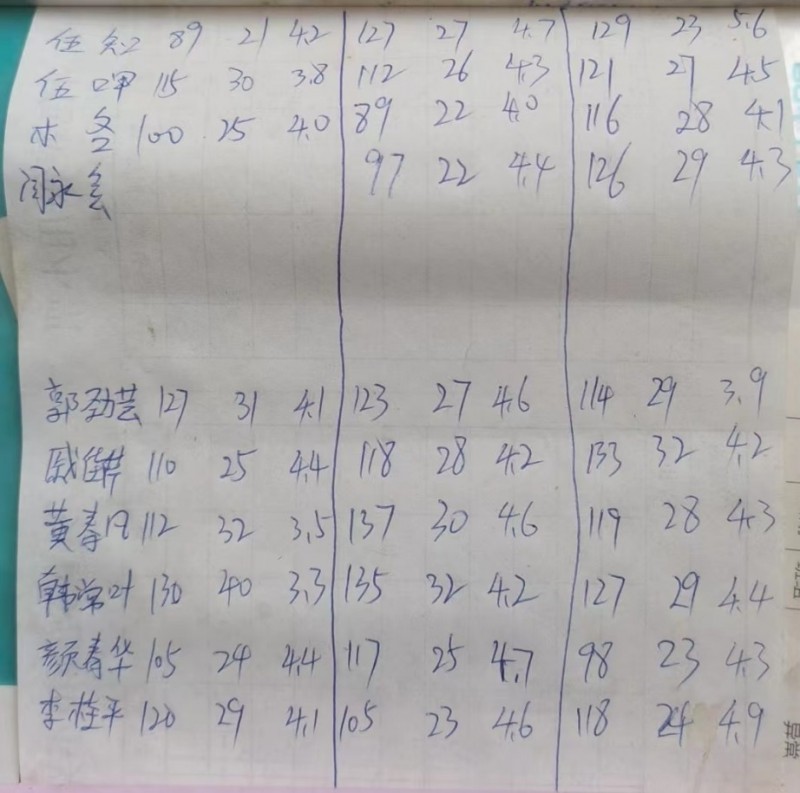 伍知 89 21 4.2 127 27 4.7 129 23 5.6
伍呷 115 30 3.8 112 26 4.3 121 27 4.5
木冬 100 25 4.0 89 22 4.0 116 28 4.1
闫永会 97 22 4.4 126 29 4.3
郭劲芸 127 31 4.1 123 27 4.6 114 29 3.9
戚 110 25 4.4 118 28 4.2 133 32 4.2
黄春 112 32 3.5 137 30 4.6 119 28 4.3
韩常叶 130 40 3.3 135 32 4.2 127 29 4.4
颜春华 105 24 4.4 117 25 4.7 98 23 4.3
李桂平 120 29 4.1 105 23 4.6 118 24 4.9